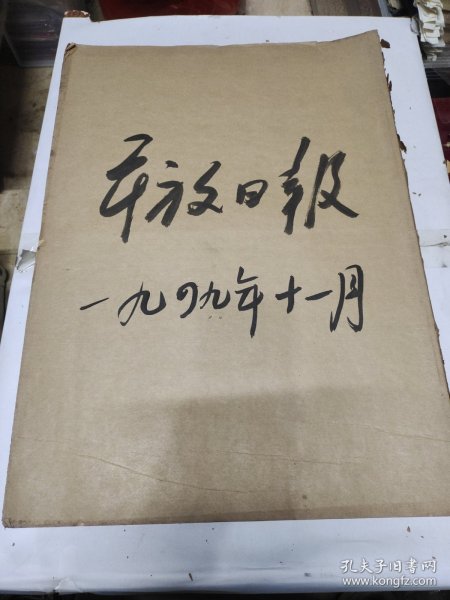 放日报
一九四九年十一月
孔夫子旧书网
www.kongfz.com